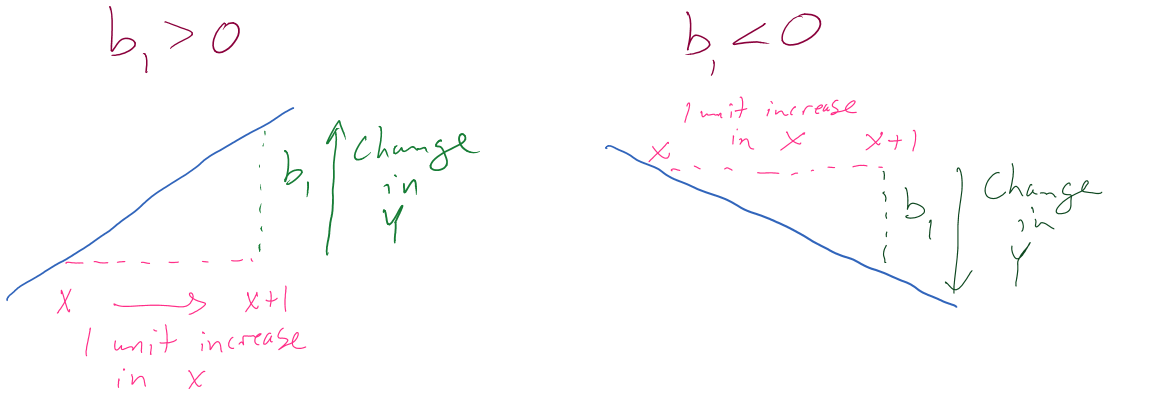 b₁ > 0
b₁
Change
in
Y
x → x+1
1 unit increase
in x
b₁ < 0
1 unit increase
in x
x x+1
b₁
Change
in
Y